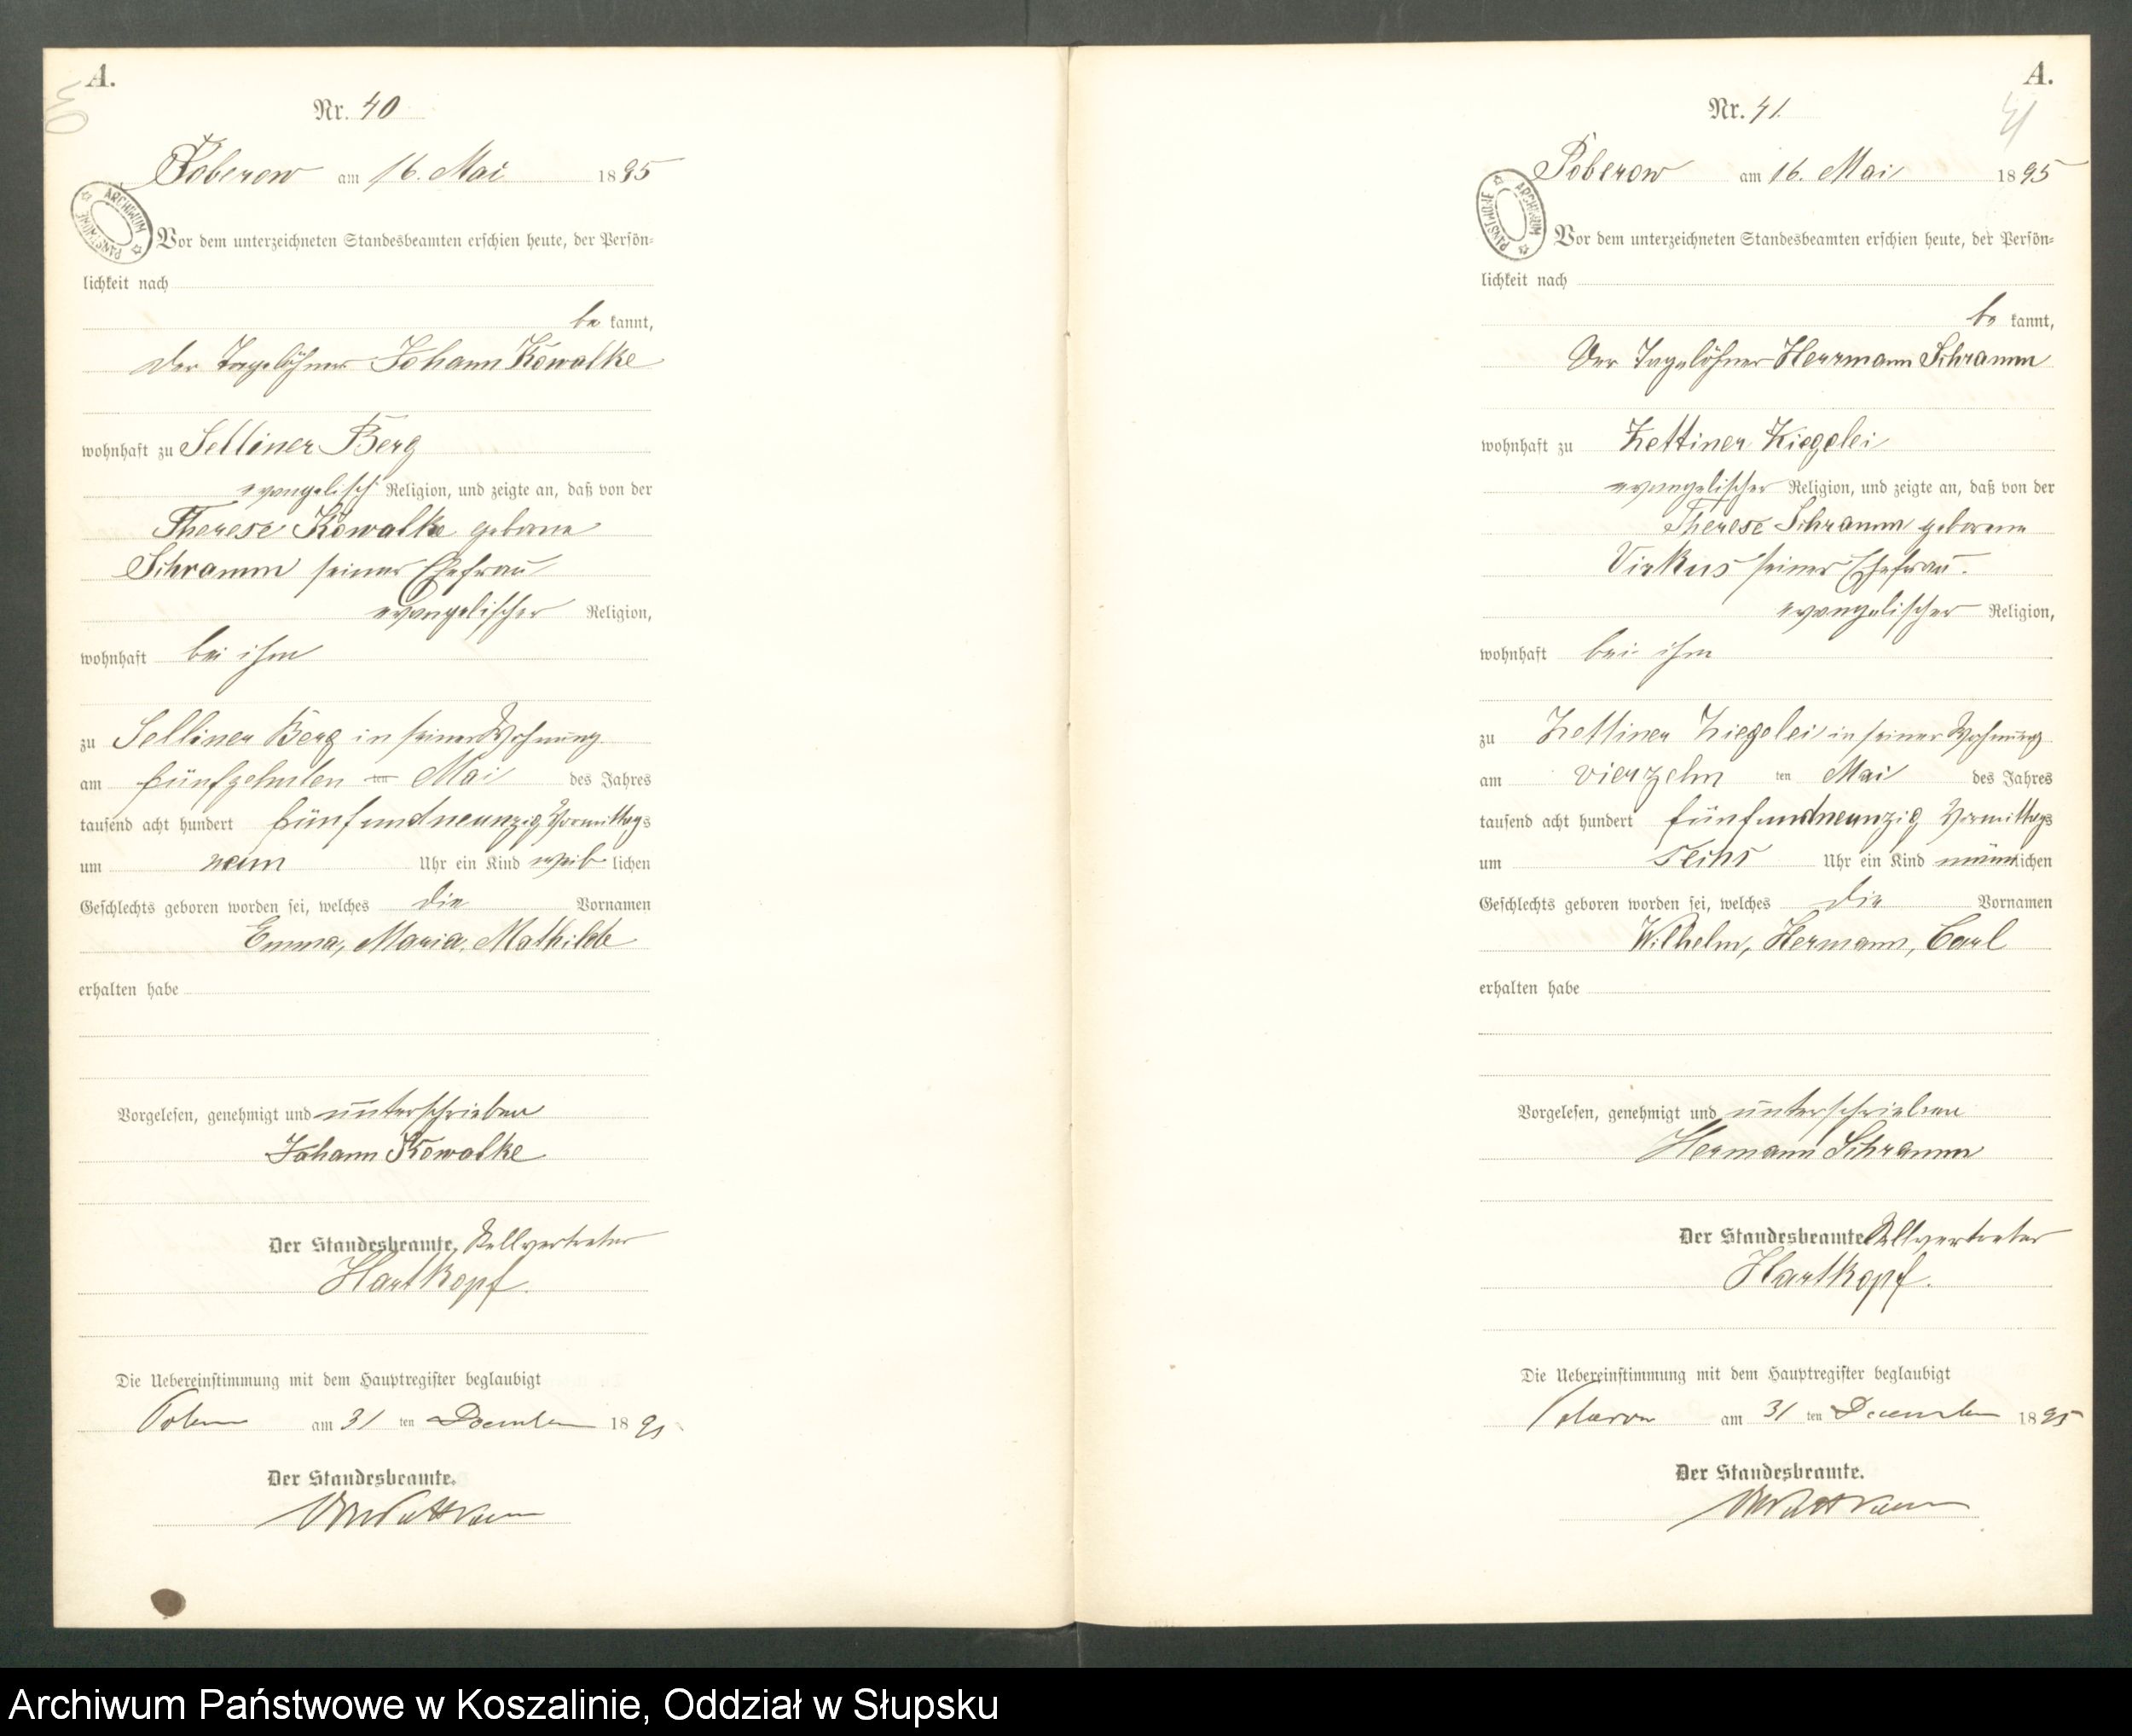 A.
40
Nr. 40
Poberow am 16. Mai 1895
ARCHIWUM PAŃSTWOWE
Vor dem unterzeichneten Standesbeamten erschien heute, der Persön=
lichkeit nach
be kannt,
der Tagelöhner Johann Kowalke
wohnhaft zu Selliner Berg
evangelisch Religion, und zeigte an, daß von der
Therese Kowalke geborne
Schramm seiner Ehefrau
evangelischer Religion,
wohnhaft bei ihm
zu Selliner Berg in seiner Wohnung
am fünfzehnten ten Mai des Jahres
tausend acht hundert fünfundneunzig Vormittags
um neun Uhr ein Kind weib lichen
Geschlechts geboren worden sei, welches die Vornamen
Emma, Maria, Mathilde
erhalten habe
Vorgelesen, genehmigt und unterschrieben
Johann Kowalke
Der Standesbeamte. Stellvertreter
Hartkopf.
Die Uebereinstimmung mit dem Hauptregister beglaubigt
am 31 ten December 1895
Der Standesbeamte.
A.
41
Nr. 41.
Poberow am 16. Mai 1895
ARCHIWUM PAŃSTWOWE
Vor dem unterzeichneten Standesbeamten erschien heute, der Persön=
lichkeit nach
be kannt,
Der Tagelöhner Herrmann Schramm
wohnhaft zu Zettiner Ziegelei
evangelischer Religion, und zeigte an, daß von der
Therese Schramm geborene
Virkus seiner Ehefrau.
evangelischer Religion,
wohnhaft bei ihm
zu Zettiner Ziegelei in seiner Wohnung
am vierzehn ten Mai des Jahres
tausend acht hundert fünfundneunzig Vormittags
um sechs Uhr ein Kind männlichen
Geschlechts geboren worden sei, welches die Vornamen
Wilhelm, Hermann, Carl
erhalten habe
Vorgelesen, genehmigt und unterschrieben
Hermann Schramm
Der Standesbeamte Stellvertreter
Hartkopf.
Die Uebereinstimmung mit dem Hauptregister beglaubigt
am 31 ten December 1895
Der Standesbeamte.
Archiwum Państwowe w Koszalinie, Oddział w Słupsku